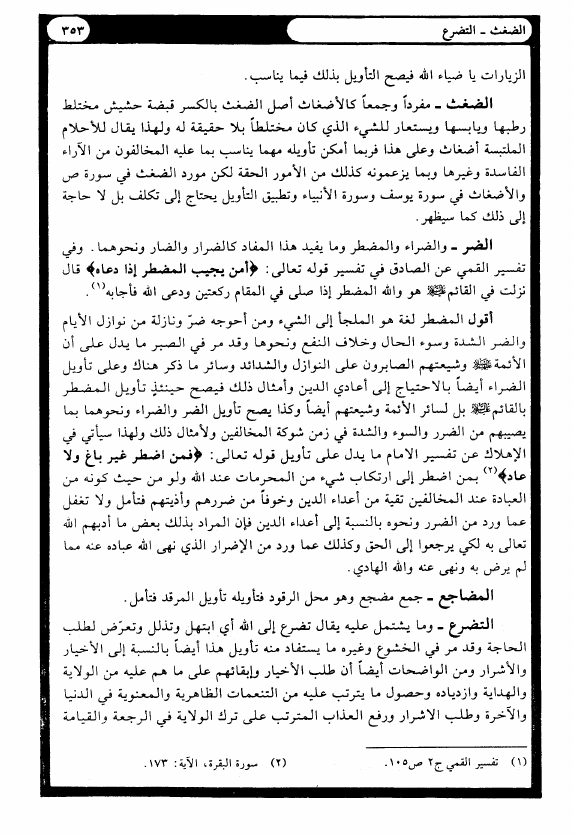 الضغث ـ التضرع
٣٥٣
الزيارات يا ضياء الله فيصح التأويل بذلك فيما يناسب.
الضغث ـ مفرداً وجمعاً كالأضغاث أصل الضغث بالكسر قبضة حشيش مختلط
رطبها ويابسها ويستعار للشيء الذي كان مختلطاً بلا حقيقة له ولهذا يقال للأحلام
الملتبسة أضغاث وعلى هذا فربما أمكن تأويله مهما يناسب بما عليه المخالفون من الآراء
الفاسدة وغيرها وبما يزعمونه كذلك من الأمور الحقة لكن مورد الضغث في سورة ص
والأضغاث في سورة يوسف وسورة الأنبياء وتطبيق التأويل يحتاج إلى تكلف بل لا حاجة
إلى ذلك كما سيظهر.
الضر ـ والضراء والمضطر وما يفيد هذا المفاد كالضرار والضار ونحوهما. وفي
تفسير القمي عن الصادق في تفسير قوله تعالى: ﴿أمن يجيب المضطر إذا دعاه﴾ قال
نزلت في القائم ﷺ هو والله المضطر إذا صلى في المقام ركعتين ودعى الله فأجابه(١).
أقول المضطر لغة هو الملجأ إلى الشيء ومن أحوجه ضرّ ونازلة من نوازل الأيام
والضر الشدة وسوء الحال وخلاف النفع ونحوها وقد مر في الصبر ما يدل على أن
الأئمة ﷺ وشيعتهم الصابرون على النوازل والشدائد وسائر ما ذكر هناك وعلى تأويل
الضراء أيضاً بالاحتياج إلى أعادي الدين وأمثال ذلك فيصح حينئذٍ تأويل المضطر
بالقائم ﷺ بل لسائر الأئمة وشيعتهم أيضاً وكذا يصح تأويل الضر والضراء ونحوهما بما
يصيبهم من الضرر والسوء والشدة في زمن شوكة المخالفين ولأمثال ذلك ولهذا سيأتي في
الإهلاك عن تفسير الامام ما يدل على تأويل قوله تعالى: ﴿فمن اضطر غير باغ ولا
عاد﴾(٢) بمن اضطر إلى ارتكاب شيء من المحرمات عند الله ولو من حيث كونه من
العبادة عند المخالفين تقية من أعداء الدين وخوفاً من ضررهم وأذيتهم فتأمل ولا تغفل
عما ورد من الضرر ونحوه بالنسبة إلى أعداء الدين فإن المراد بذلك بعض ما أدبهم الله
تعالى به لكي يرجعوا إلى الحق وكذلك عما ورد من الإضرار الذي نهى الله عباده عنه مما
لم يرض به ونهى عنه والله الهادي.
المضاجع ـ جمع مضجع وهو محل الرقود فتأويله تأويل المرقد فتأمل.
التضرع ـ وما يشتمل عليه يقال تضرع إلى الله أي ابتهل وتذلل وتعرّض لطلب
الحاجة وقد مر في الخشوع وغيره ما يستفاد منه تأويل هذا أيضاً بالنسبة إلى الأخيار
والأشرار ومن الواضحات أيضاً أن طلب الأخيار وإبقائهم على ما هم عليه من الولاية
والهداية وازدياده وحصول ما يترتب عليه من التنعمات الظاهرية والمعنوية في الدنيا
والآخرة وطلب الاشرار ورفع العذاب المترتب على ترك الولاية في الرجعة والقيامة
(١) تفسير القمي ج٢ ص١٠٥.
(٢) سورة البقرة، الآية: ١٧٣.